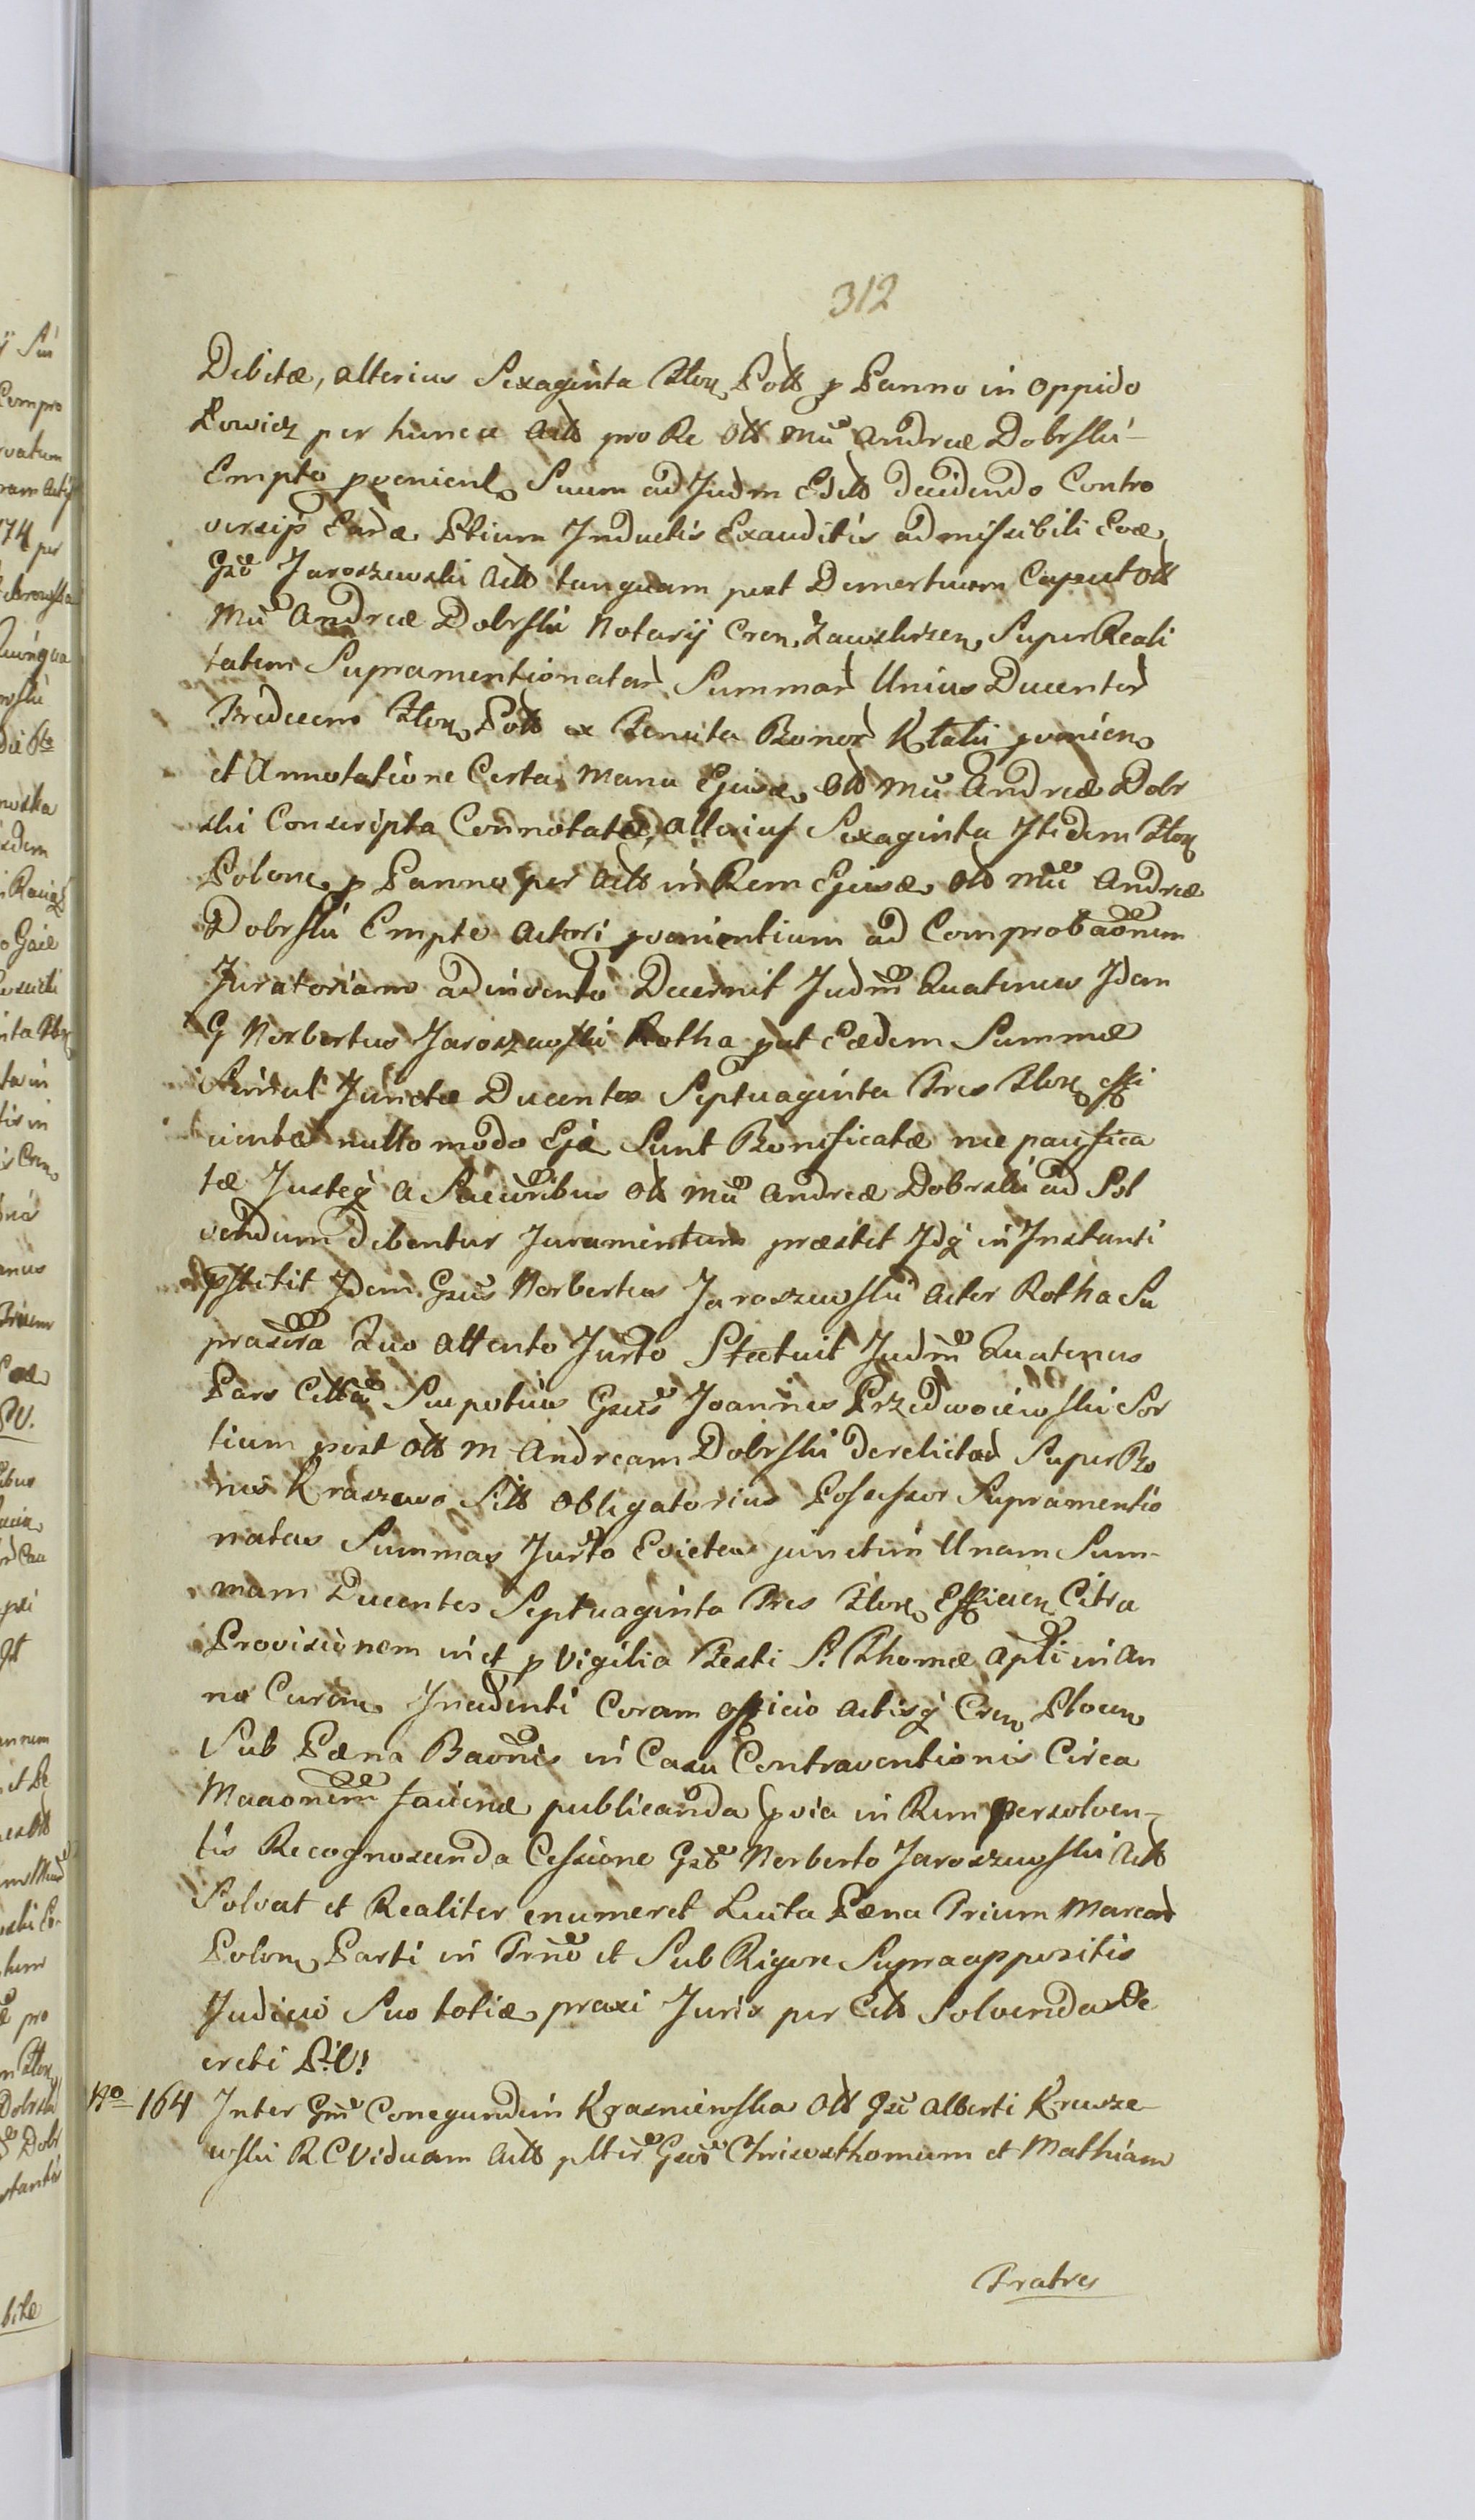 312
Debitæ, alterius Sexaginta Flor. Poll p Panno in oppido
Lowicz per hunce Actt pro Re Oll Mći Andreæ Dobrski
Empto pvenient. Suum ad Judm Edctt decidendo Contro
versijs Earde. Ptium Inductis Exauditis admissibili Eoæ.
Gsō Jaroszewski Actt tanquam post Demortuum Caput Oll
Mći Andreæ Dobrski Notarij Cren. Zawskrzen. Super Reali
tatem Supramentionatar Summar Unius Ducentor
Tredecem Flor. Poll ex Tenuta Bonor Ktatii pvenien.
et Annotatione Certa Manu Ejusde. Oll Mći Andreæ Dobr
ski Conscripta Connotatæ, alterius Sexaginta Itidem Flor
Polone. p Panno per Actt in Rem Ejusde. Oll Mći Andreæ
Dobrski Empto Actori pvenientium ad Comprobaonem
Juratoriam adinvento Decernit Judm Quatenus Idem
G Norbertus Jaroszewski Rotha put Eædem Summæ
Simul Junctæ Ducentos Septuaginta Tres Flor. effi
cientes nullo modo Ejæ. Sunt Bonificatæ nec pacifica
tæ Justeq a Succioribus Oll Mći Andreæ Dobrski ad Sol
vendum debentur Juramentum præstet Idq in Instanti
pstitit Idem Gsus Norbertus Jaroszewski Actor Rotha Su
prascra Quo attento Jurto Statuit Judm Quatenus
Pars Citta Seu potius Gsus Joannes Przedwoiewski Sor
tium post Oll M Andream Dobrski derelictar Super Bo
nis Kraszewo Sitt Obligatorius Possessor Supramentio
natas Summas Jurto Evictas junctim Unam Sum-
mam Ducentos Septuaginta Tres Flor. Efficien. Citra
Provisionem in et p Vigilia Festi S. Thomæ Apli in An
no Curen. Incidenti Coram officio Actisq Cren. Plocen.
Sub Pæna Baonis in Casu Contraventionis Circa
Maaonem faciene publicanda pvia in Rem persolven-
tis Recognoscenda Cessione Gsō Norberto Jaroszewski Actt
Solvat et Realiter enumeret Luita Pæna Trium Marcar
Polon. Parti in Trno et Sub Rigore Supraappositis
Judicio Suo totiæ. praxi Juris per Citt Solvenda De
creti P. V!
No 164 Inter Gm Conegundim Krasniewska Oll Gsi Alberti Krusze
wski R C Viduam Actt pltir Gsos Chrisosthomum et Mathiam
Fratres